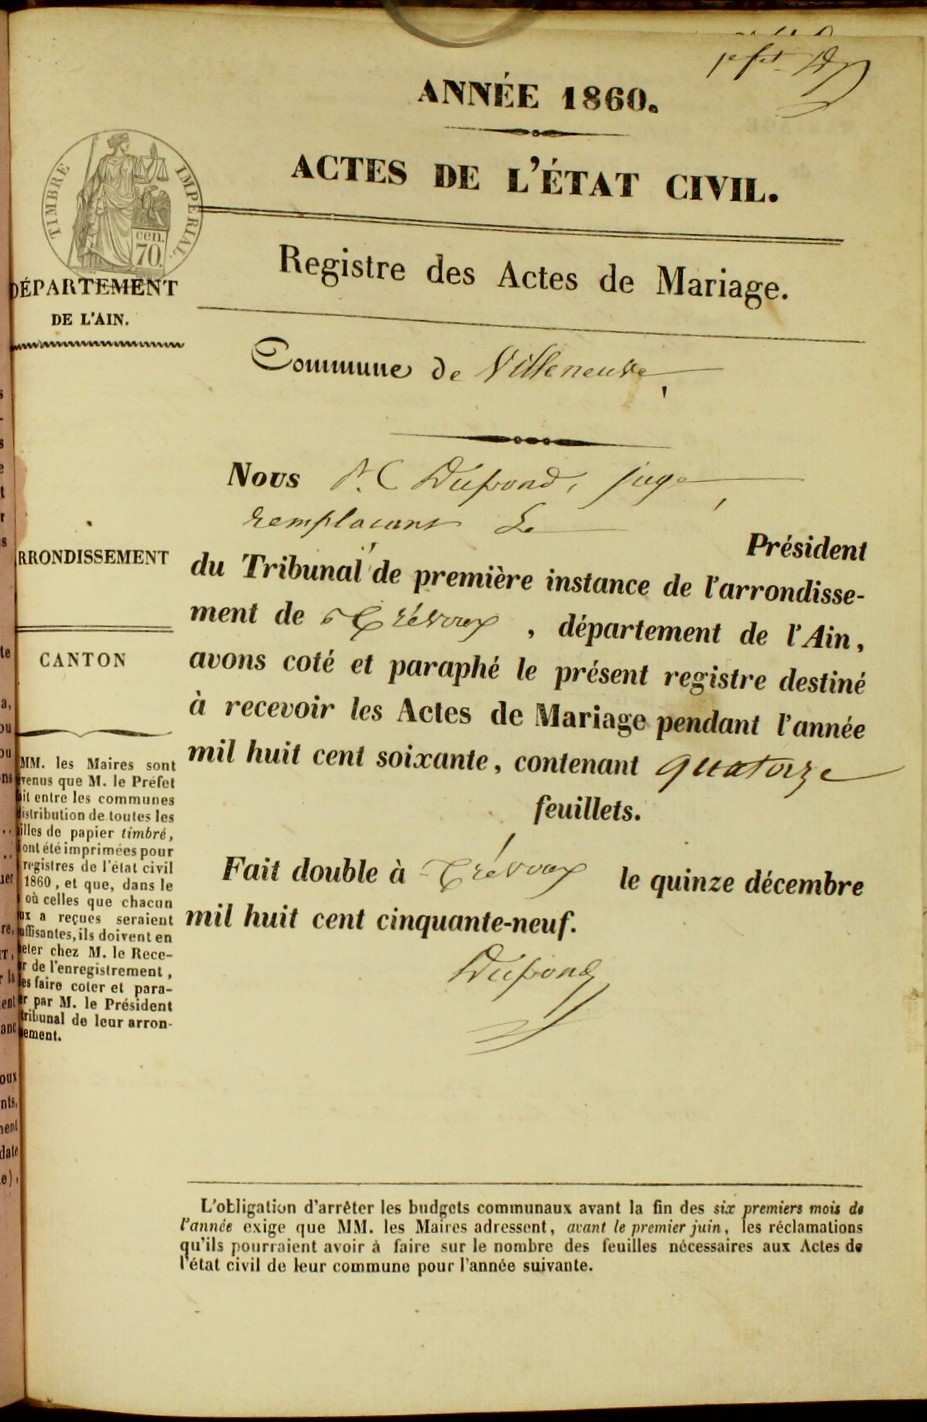 ANNÉE 1860.
ACTES DE L'ÉTAT CIVIL.
TIMBRE IMPÉRIAL.
cen.
70.
DÉPARTEMENT
DE L'AIN.
Registre des Actes de Mariage.
Commune de Villeneuve
Nous Dupond, juge
remplaçant Le
Président
du Tribunal de première instance de l'arrondisse-
ment de Trévoux, département de l'Ain,
avons coté et paraphé le présent registre destiné
à recevoir les Actes de Mariage pendant l'année
mil huit cent soixante, contenant quatorze
feuillets.
Fait double à Trévoux le quinze décembre
mil huit cent cinquante-neuf.
Dupond
RRONDISSEMENT
CANTON
MM. les Maires sont
venus que M. le Préfet
it entre les communes
istribution de toutes les
illes de papier timbré,
ont été imprimées pour
registres de l'état civil
1860, et que, dans le
où celles que chacun
ux a reçues seraient
uffisantes, ils doivent en
eter chez M. le Rece-
r de l'enregistrement,
es faire coter et para-
r par M. le Président
tribunal de leur arron-
ement.
L'obligation d'arrêter les budgets communaux avant la fin des six premiers mois de
l'année exige que MM. les Maires adressent, avant le premier juin, les réclamations
qu'ils pourraient avoir à faire sur le nombre des feuilles nécessaires aux Actes de
l'état civil de leur commune pour l'année suivante.